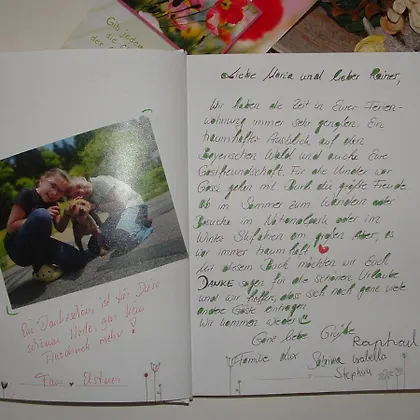 Gib jedem
der
Liebe Maria und lieber Rainer,
Wir haben die Zeit in Eurer Ferien-
wohnung immer sehr genossen. Ein
traumhafter Ausblick auf den
Bayerischen Wald und auch Eure
Gastfreundschaft. Für die Kinder war
Gassi gehen mit die größte Freude
ob im Sommer zum Wandern oder
Besuche im Nationalpark oder im
Winter Skifahren am großen Arber, es
war immer traumhaft
Mit diesem Buch möchten wir Euch
DANKE sagen für die schönen Urlaube
und wir hoffen, dass sich noch ganz viele
andere Gäste eintragen.
Wir kommen wieder
Ganz liebe Grüße
Raphael
Familie Lux Sabrina Isabella
Stephan
Ein Dankeschön ist für Diese
schönen
mehr!
Fam.